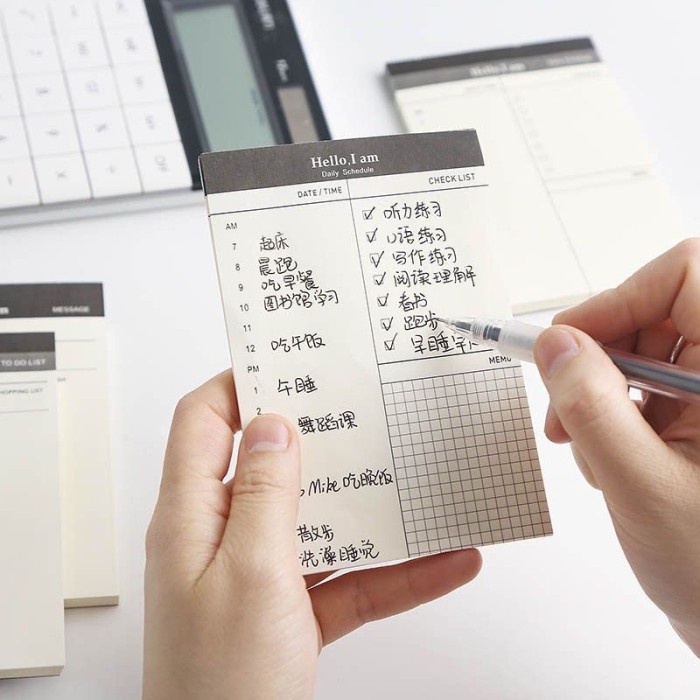 Hello,I am
Daily Schedule
DATE / TIME
AM
7 起床
8 晨跑
9 吃早餐
10 图书馆学习
11
12 吃午饭
PM
1 午睡
2
舞蹈课
Mike吃晚饭
散步
洗澡睡觉
CHECK LIST
听力练习
口语练习
写作练习
阅读理解
看书
跑步
早睡早
MEMO
Hello,I am
MESSAGE
TO DO LIST
HOPPING LIST